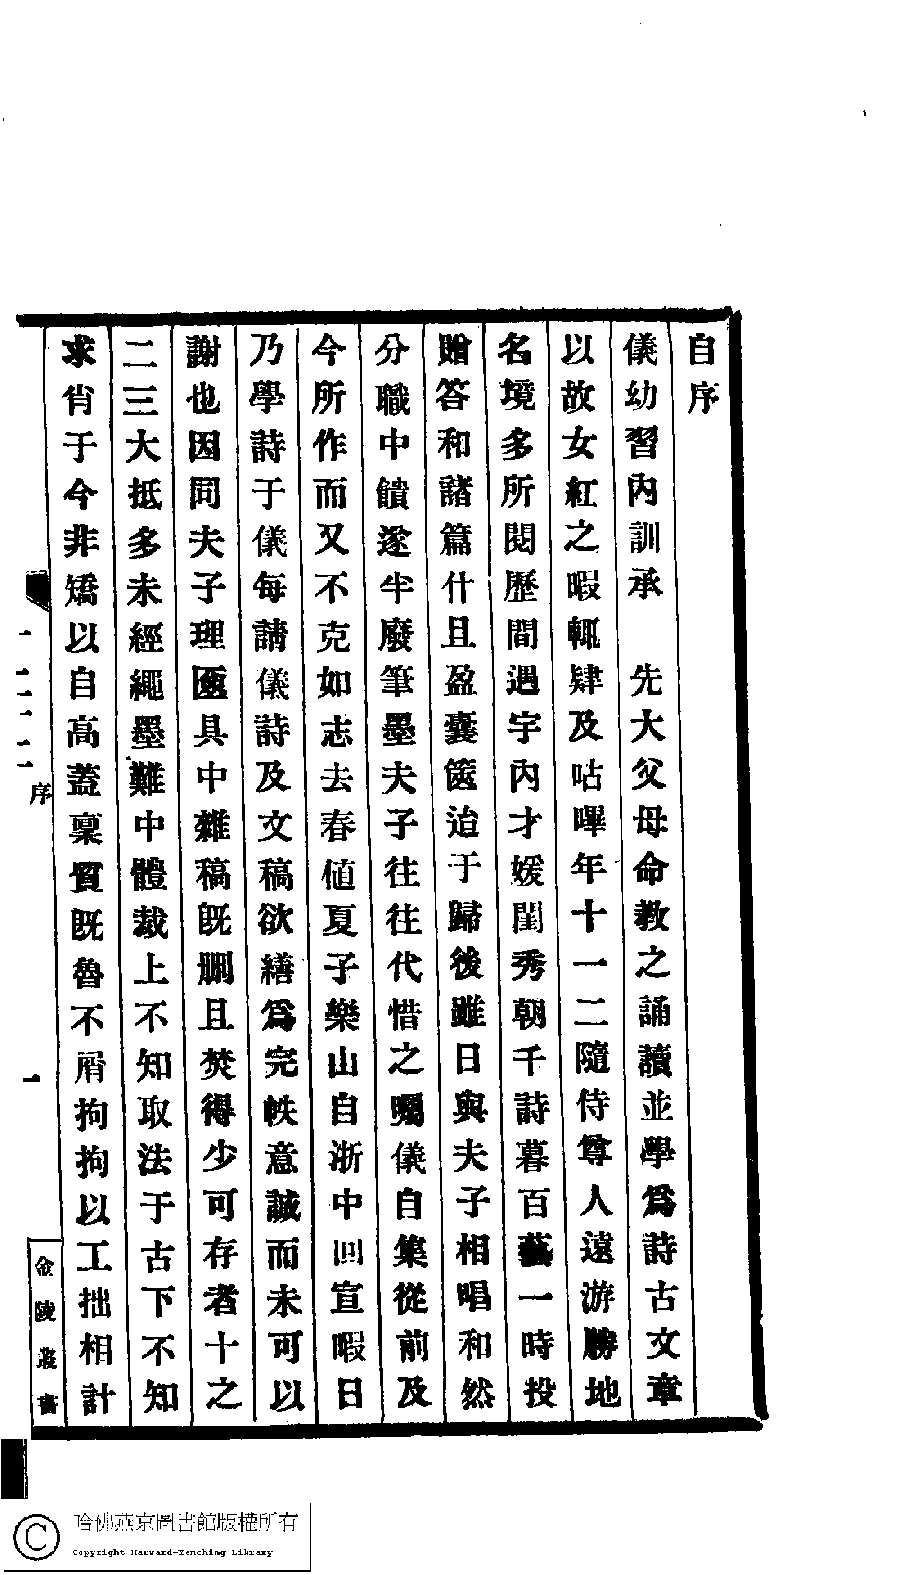 自序
儀幼習內訓承　先大父母命教之誦讀並學爲詩古文章
以故女紅之暇輒肄及呫嗶年十一二隨侍尊人遠游勝地
名境多所閱歷間遇宇內才媛閨秀朝千詩暮百藝一時投
贈答和諸篇什且盈囊篋迨于歸後雖日與夫子相唱和然
分職中饋遂半廢筆墨夫子往往代惜之囑儀自集從前及
今所作而又不克如志去春值夏子樂山自浙中回宣暇日
乃學詩于儀每請儀詩及文稿欲繕爲完帙意誠而未可以
謝也因同夫子理匳具中雜稿旣刪且焚得少可存者十之
二三大抵多未經繩墨難中體裁上不知取法于古下不知
求肖于今非矯以自高蓋稟質旣魯不屑拘拘以工拙相計
序
一
金陵叢書
哈佛燕京圖書館版權所有
Copyright Harvard-Yenching Library